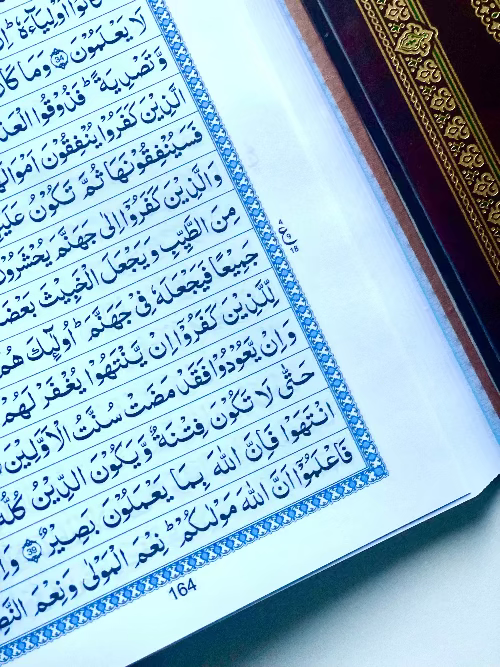 نُوْۤا اَوْلِيَآءَهٗ ؕ اِنْ
لَا يَعْلَمُوْنَ ﴿34﴾ وَمَا كَانَ
وَّتَصْدِيَةً ؕ فَذُوْقُوا الْعَذَ
الَّذِيْنَ كَفَرُوْا يُنْفِقُوْنَ اَمْوَالَهُ
فَسَيُنْفِقُوْنَهَا ثُمَّ تَكُوْنُ عَلَيْهِ
وَالَّذِيْنَ كَفَرُوْۤا اِلٰى جَهَنَّمَ يُحْشَرُوْنَ
مِنَ الطَّيِّبِ وَيَجْعَلَ الْخَبِيْثَ بَعْضَهٗ
جَمِيْعًا فَيَجْعَلَهٗ فِيْ جَهَنَّمَ ؕ اُولٰٓئِكَ هُمُ
لِّلَّذِيْنَ كَفَرُوْۤا اِنْ يَّنْتَهُوْا يُغْفَرْ لَهُمْ
وَاِنْ يَّعُوْدُوْا فَقَدْ مَضَتْ سُنَّتُ الْاَوَّلِيْنَ
حَتّٰى لَا تَكُوْنَ فِتْنَةٌ وَّيَكُوْنَ الدِّيْنُ كُلُّهٗ
انْتَهَوْا فَاِنَّ اللّٰهَ بِمَا يَعْمَلُوْنَ بَصِيْرٌ ﴿39﴾ وَاِ
فَاعْلَمُوْۤا اَنَّ اللّٰهَ مَوْلٰىكُمْ ؕ نِعْمَ الْمَوْلٰى وَنِعْمَ النَّصِ
ع
18
164